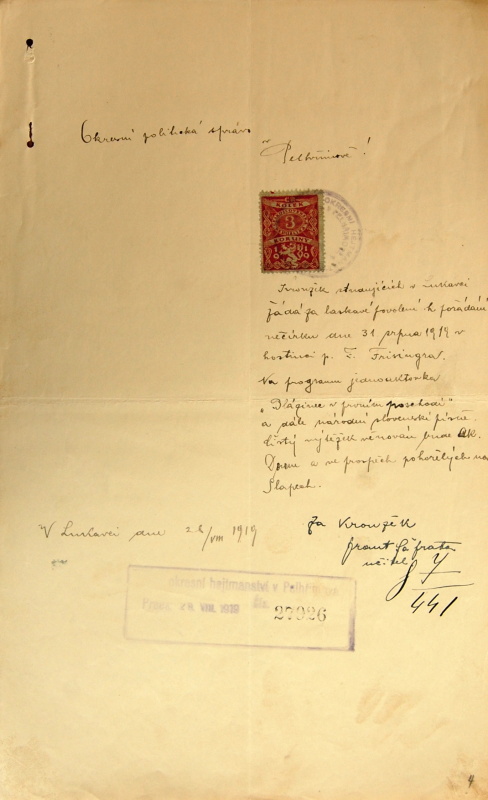 Okresní politická správa
v Pelhřimově!
KOLEK
3
KORUNY
1919
Kroužek studujících v Lukavci
žádá za laskavé povolení k pořádání
večírku dne 31 srpna 1919 v
hostinci p. F. Frisingra.
Na programu jednoaktovka
a dále národní slovenské písně.
Čistý výtěžek věnován bude
a ve prospěch pohořelých na
Slapech.
V Lukavci dne 26/VIII 1919
Za Kroužek
učitel
441
okresní hejtmanství v Pelhřimově
VIII. 1919
27026
4